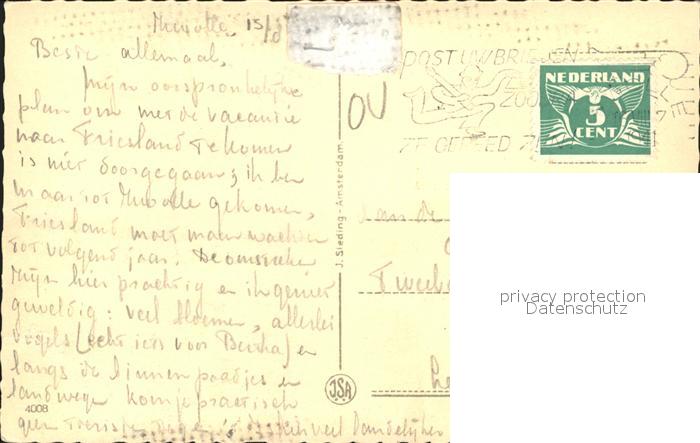 Zwolle, 15/
Beste allemaal,
Mijn oorspronkelijke
plan om met de vacantie
naar Friesland te komen
is niet doorgegaan; ik ben
maar tot Zwolle gekomen,
Friesland moet maar wachten
tot volgend jaar. De omstreken
zijn hier prachtig en ik geniet
geweldig: veel bloemen, allerlei
vogels (echt iets voor Bertha) en
langs de binnen paadjes en
landwegen kom je practisch
geen toeristen
4008
J. Sleding - Amsterdam.
JSA
OV
POST UW BRIEVEN
ZOO
NEDERLAND
5
CENT
aan de
privacy protection
Datenschutz